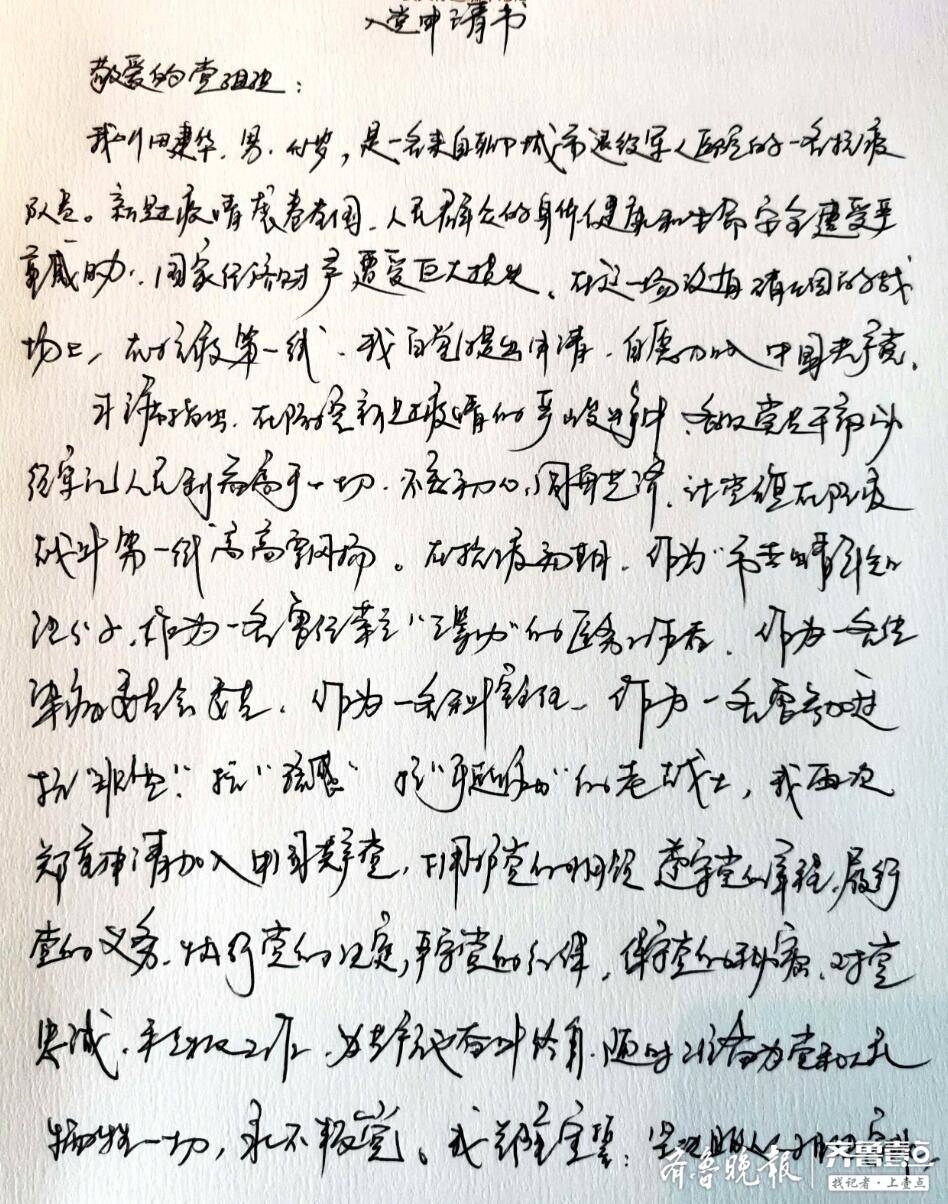 入党申请书
敬爱的党组织：
我叫田建华，男，岁，是一名来自聊城市退役军人医院的一名抗疫
队员。新冠疫情席卷全国，人民群众的身体健康和生命安全遭受严
重威胁，国家经济财产遭受巨大损失。在这一场没有硝烟的战
场上，在抗疫第一线，我自觉提出申请，自愿加入中国共产党。
在防控新冠疫情的严峻斗争中，各级党员干部以
人民利益高于一切，不忘初心，同舟共济，让党旗在防疫
战斗第一线高高飘扬。在抗疫初期，作为
分子，作为一名曾经荣立"三等功"的医务工作者，作为一名传
染病委员会委员，作为一名科室主任，作为一名曾参加过
抗"非典"、抗"流感"、抗"手足口病"的老战士，我再次
郑重申请加入中国共产党，拥护党的纲领，遵守党的章程，履行
党的义务，执行党的决定，严守党的纪律，保守党的秘密，对党
忠诚，积极工作，为共产主义奋斗终身，随时准备为党和人民
牺牲一切，永不叛党。我郑重宣誓：
齐鲁晚报
齐鲁壹点
找记者·上壹点